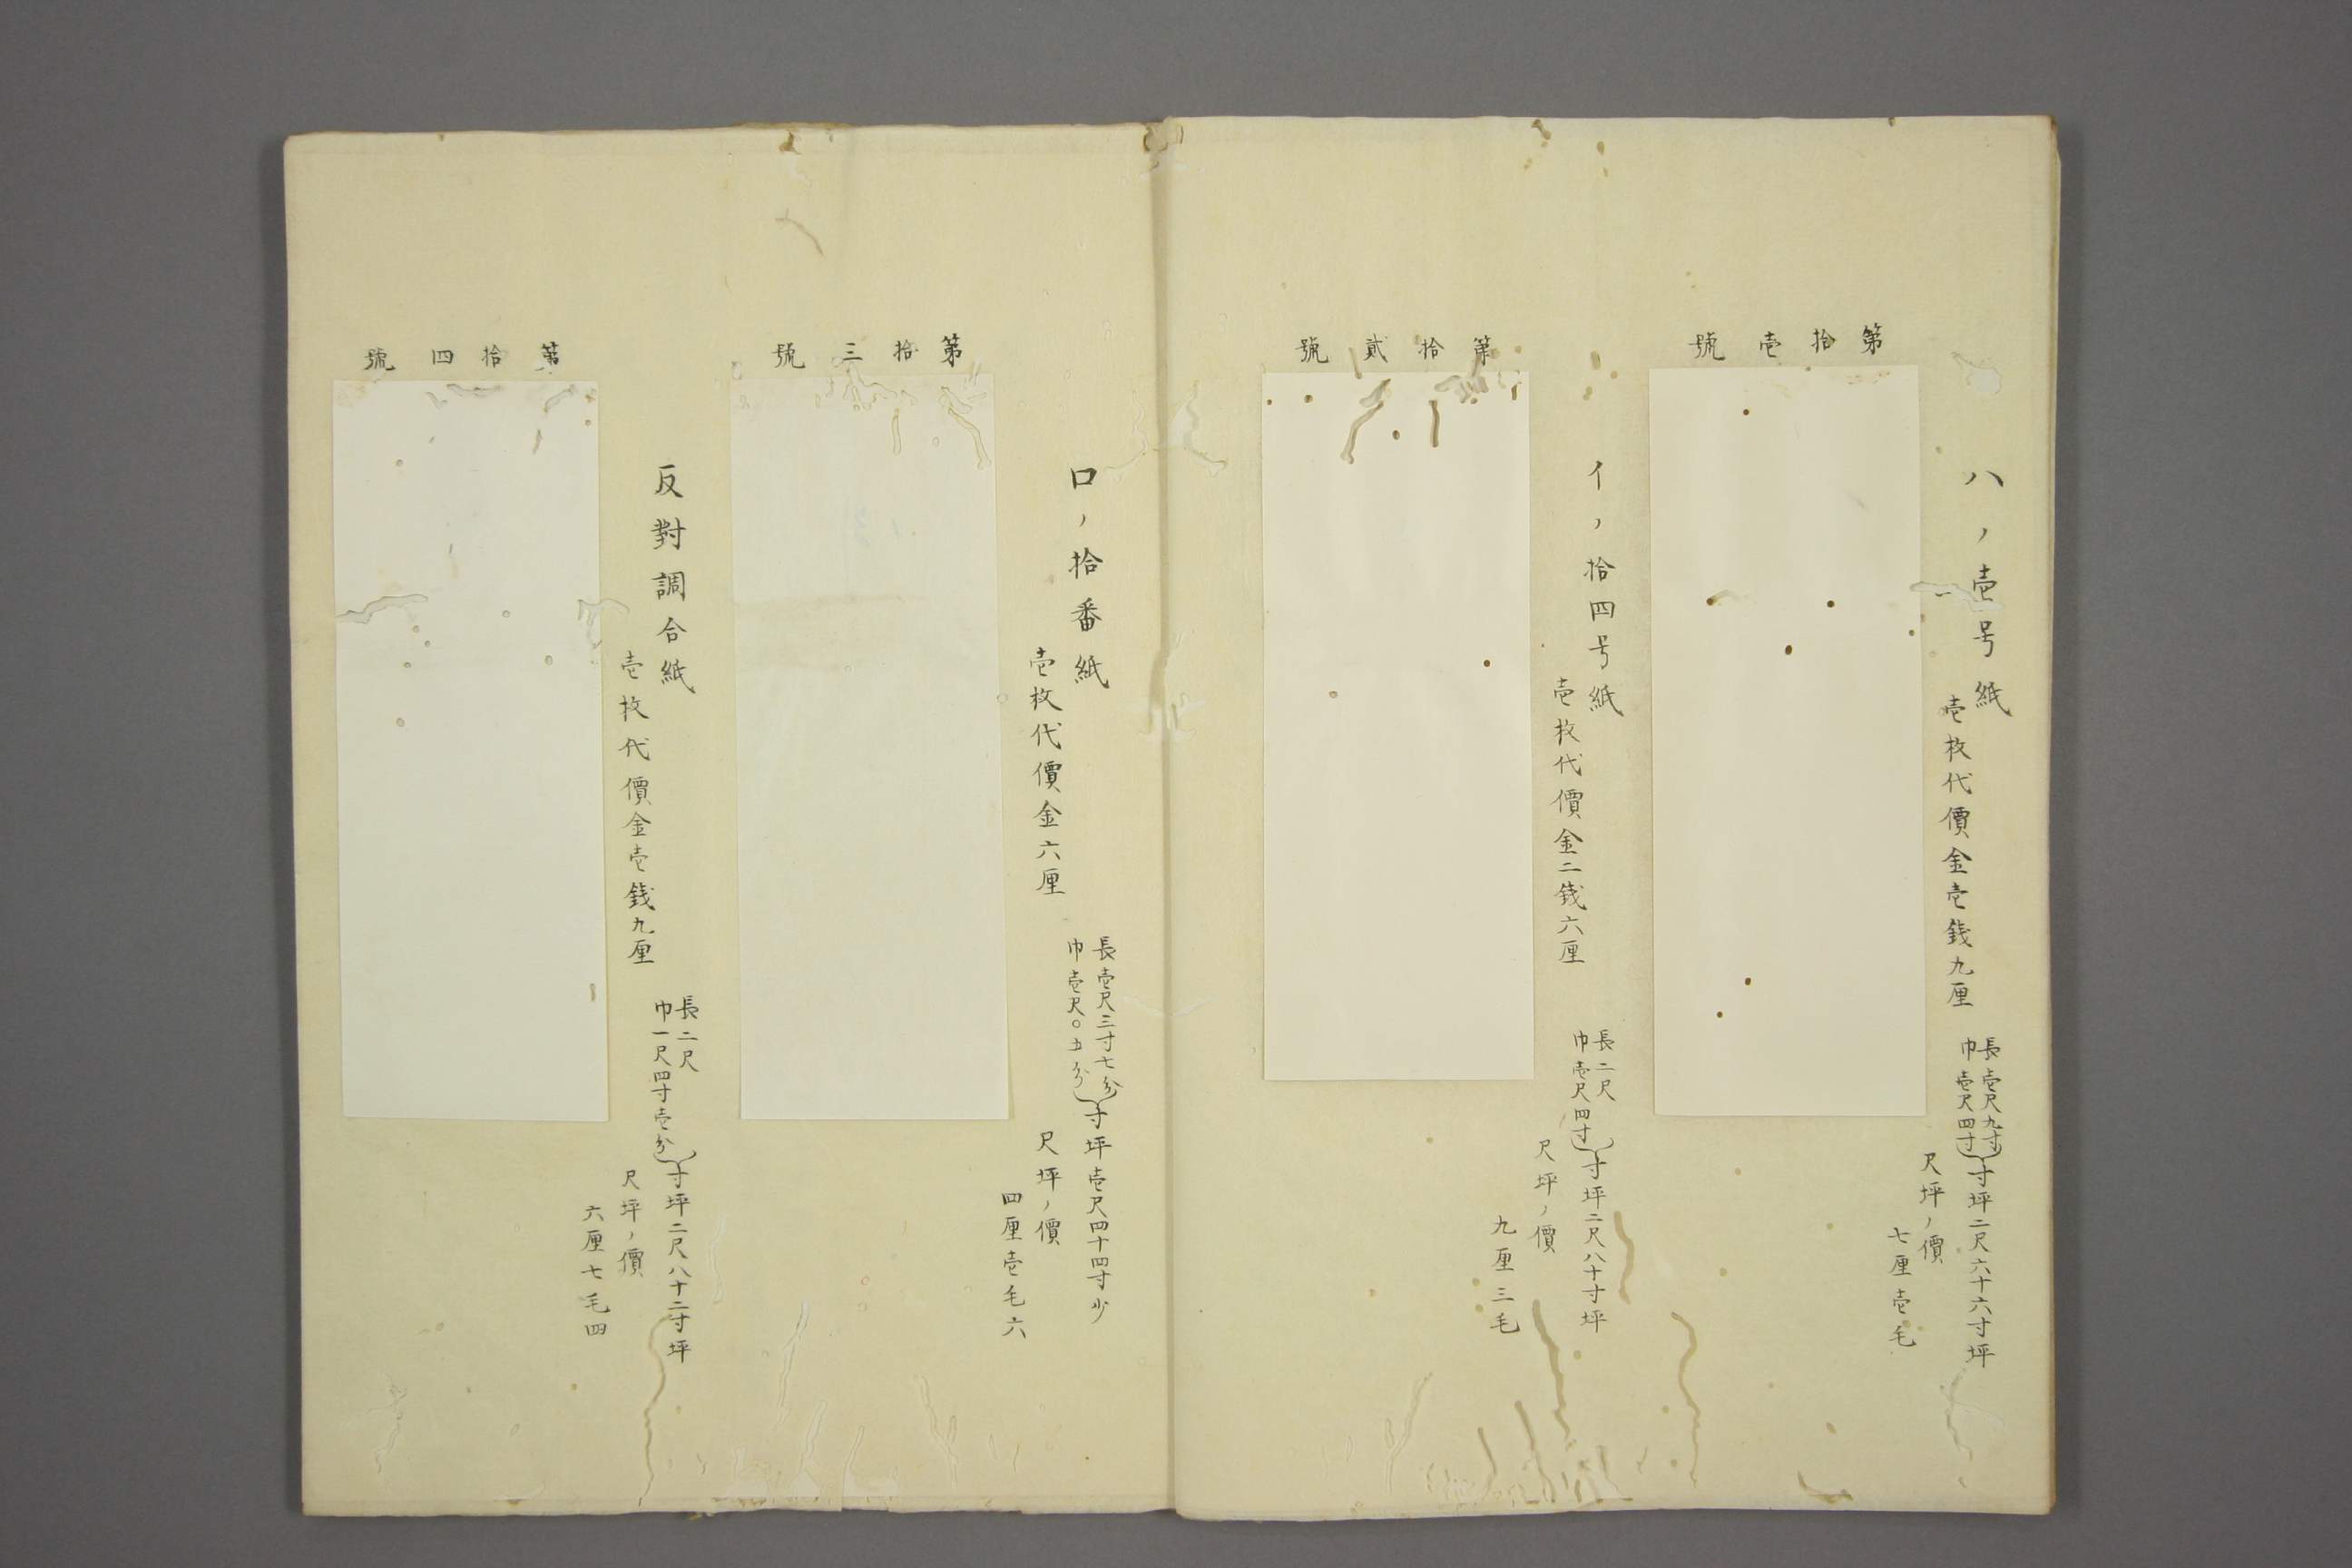 第拾壱號
ハノ壱号紙
壱枚代價金壱錢九厘
長壱尺九寸
巾壱尺四寸
寸坪二尺六十六寸坪
尺坪ノ價
七厘壱毛
第拾貳號
イノ拾四号紙
壱枚代價金二錢六厘
長二尺
巾壱尺四寸
寸坪二尺八十寸坪
尺坪ノ價
九厘三毛
第拾三號
ロノ拾番紙
壱枚代價金六厘
長壱尺三寸七分
巾壱尺〇五分
寸坪壱尺四十四寸少
尺坪ノ價
四厘壱毛六
第拾四號
反對調合紙
壱枚代價金壱錢九厘
長二尺
巾一尺四寸壱分
寸坪二尺八十二寸坪
尺坪ノ價
六厘七毛四